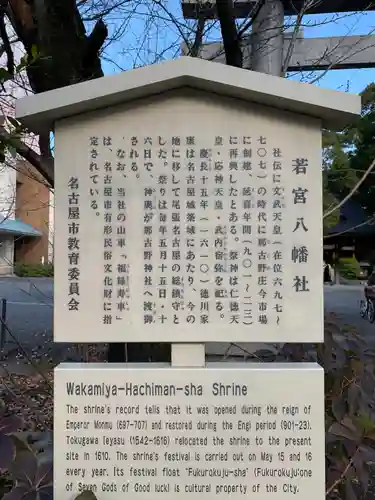 若宮八幡社
社伝に文武天皇(在位六九七〜
七〇七)の時代に那古野庄今市場
に創建、延喜年間(九〇一〜二三)
に再興したとある。祭神は仁徳天
皇・応神天皇・武内宿祢を祀る。
慶長十五年(一六一〇)徳川家
康は名古屋城築城にあたり、今の
地に移して尾張名古屋の総鎮守と
した。祭りは毎年五月十五日・十
六日で、神輿が那古野神社へ渡御
される。
なお、当社の山車「福禄寿車」
は、名古屋市有形民俗文化財に指
定されている。
名古屋市教育委員会
Wakamiya-Hachiman-sha Shrine
The shrine's record tells that it was opened during the reign of
Emperor Monmu (697-707) and restored during the Engi period (901-23).
Tokugawa Ieyasu (1542-1616) relocated the shrine to the present
site in 1610. The shrine's festival is carried out on May 15 and 16
every year. Its festival float "Fukurokuju-sha" (Fukurokuju:one
of Seven Gods of Good luck) is cultural property of the City.